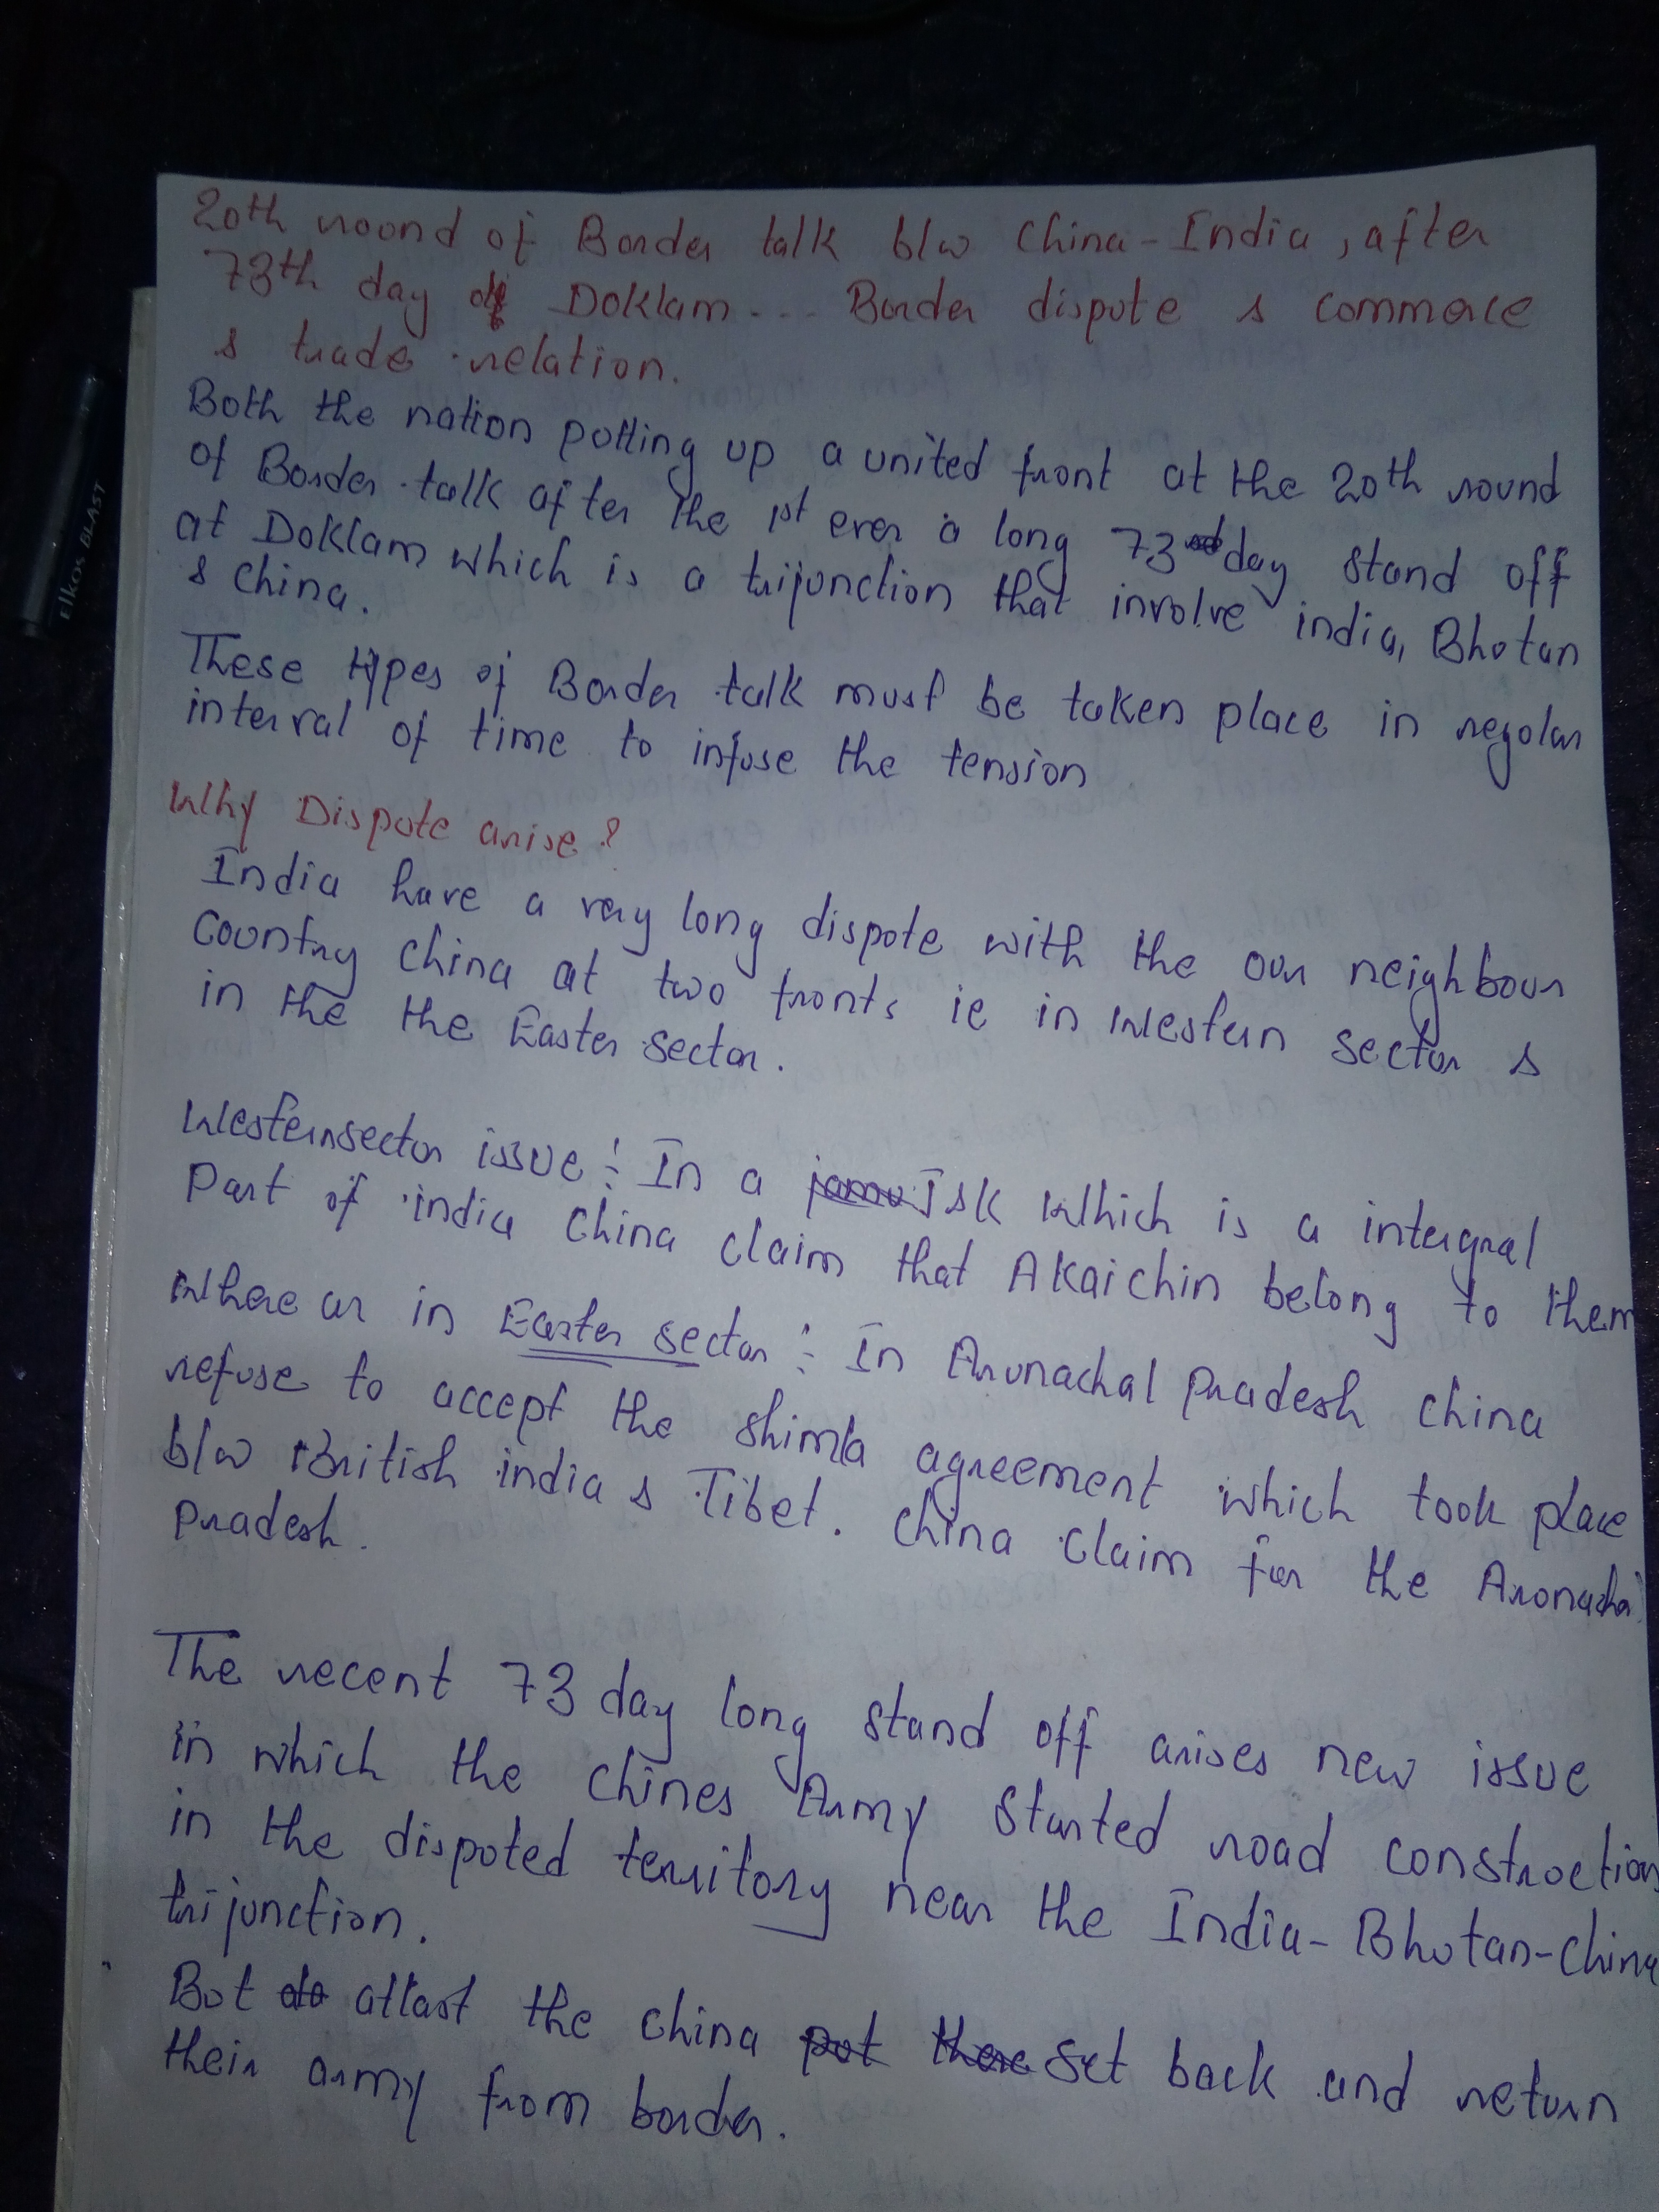 20th round of Border talk b/w China-India, after
73th day of Doklam... Border dispute & commerce
& trade relation.
Both the nation putting up a united front at the 20th round
of Border talk after the 1st ever a long 73 day stand off
at Doklam which is a trijunction that involve india, Bhutan
& China.
These types of Border talk must be taken place in regular
interval of time to infuse the tension
Why Dispute arise?
India have a very long dispute with the our neighbour
Country China at two fronts ie in Western sector &
in the the Easter sector.
Westernsector issue: In a J&K Which is a intergral
Part of india China claim that Akaichin belong to them
Where as in Easter sector: In Arunachal Pradesh china
refuse to accept the shimla agreement which took place
b/w British india & Tibet. China Claim for the Arunachal
Pradesh.
The recent 73 day long stand off arises new issue
in which the Chines Army Started road construction
in the disputed territory near the India-Bhutan-China
trijunction.
But atlast the China set back and return
their army from border.
elkos BLAST